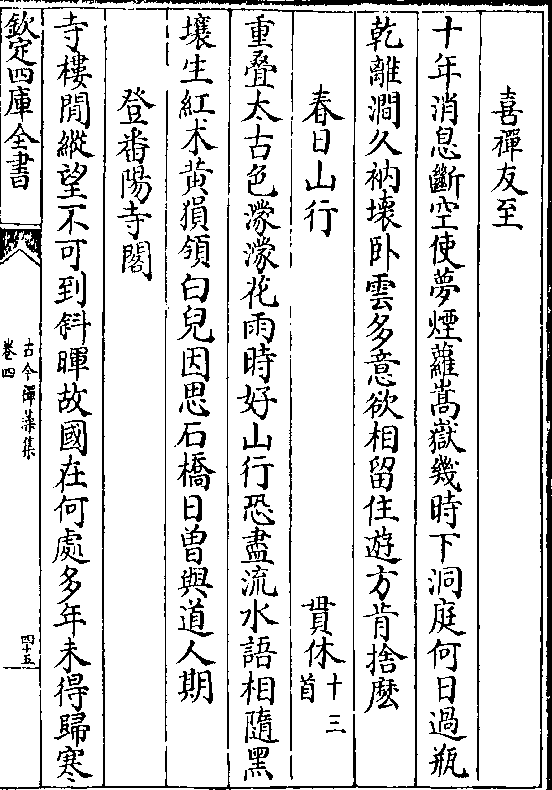 喜禪友至
十年消息斷空使夢煙蘿嵩嶽幾時下洞庭何日過瓶
乾離澗久衲壞卧雲多意欲相留住遊方肯捨麽
春日山行　貫休十三首
重叠太古色濛濛花雨時好山行恐盡流水語相隨黑
壤生紅朮黄猿領白兒因思石橋日曽與道人期
登番陽寺閣
寺樓閒縱望不可到斜暉故國在何處多年未得歸寒
欽定四庫全書
古今禪藻集
卷四
四十五